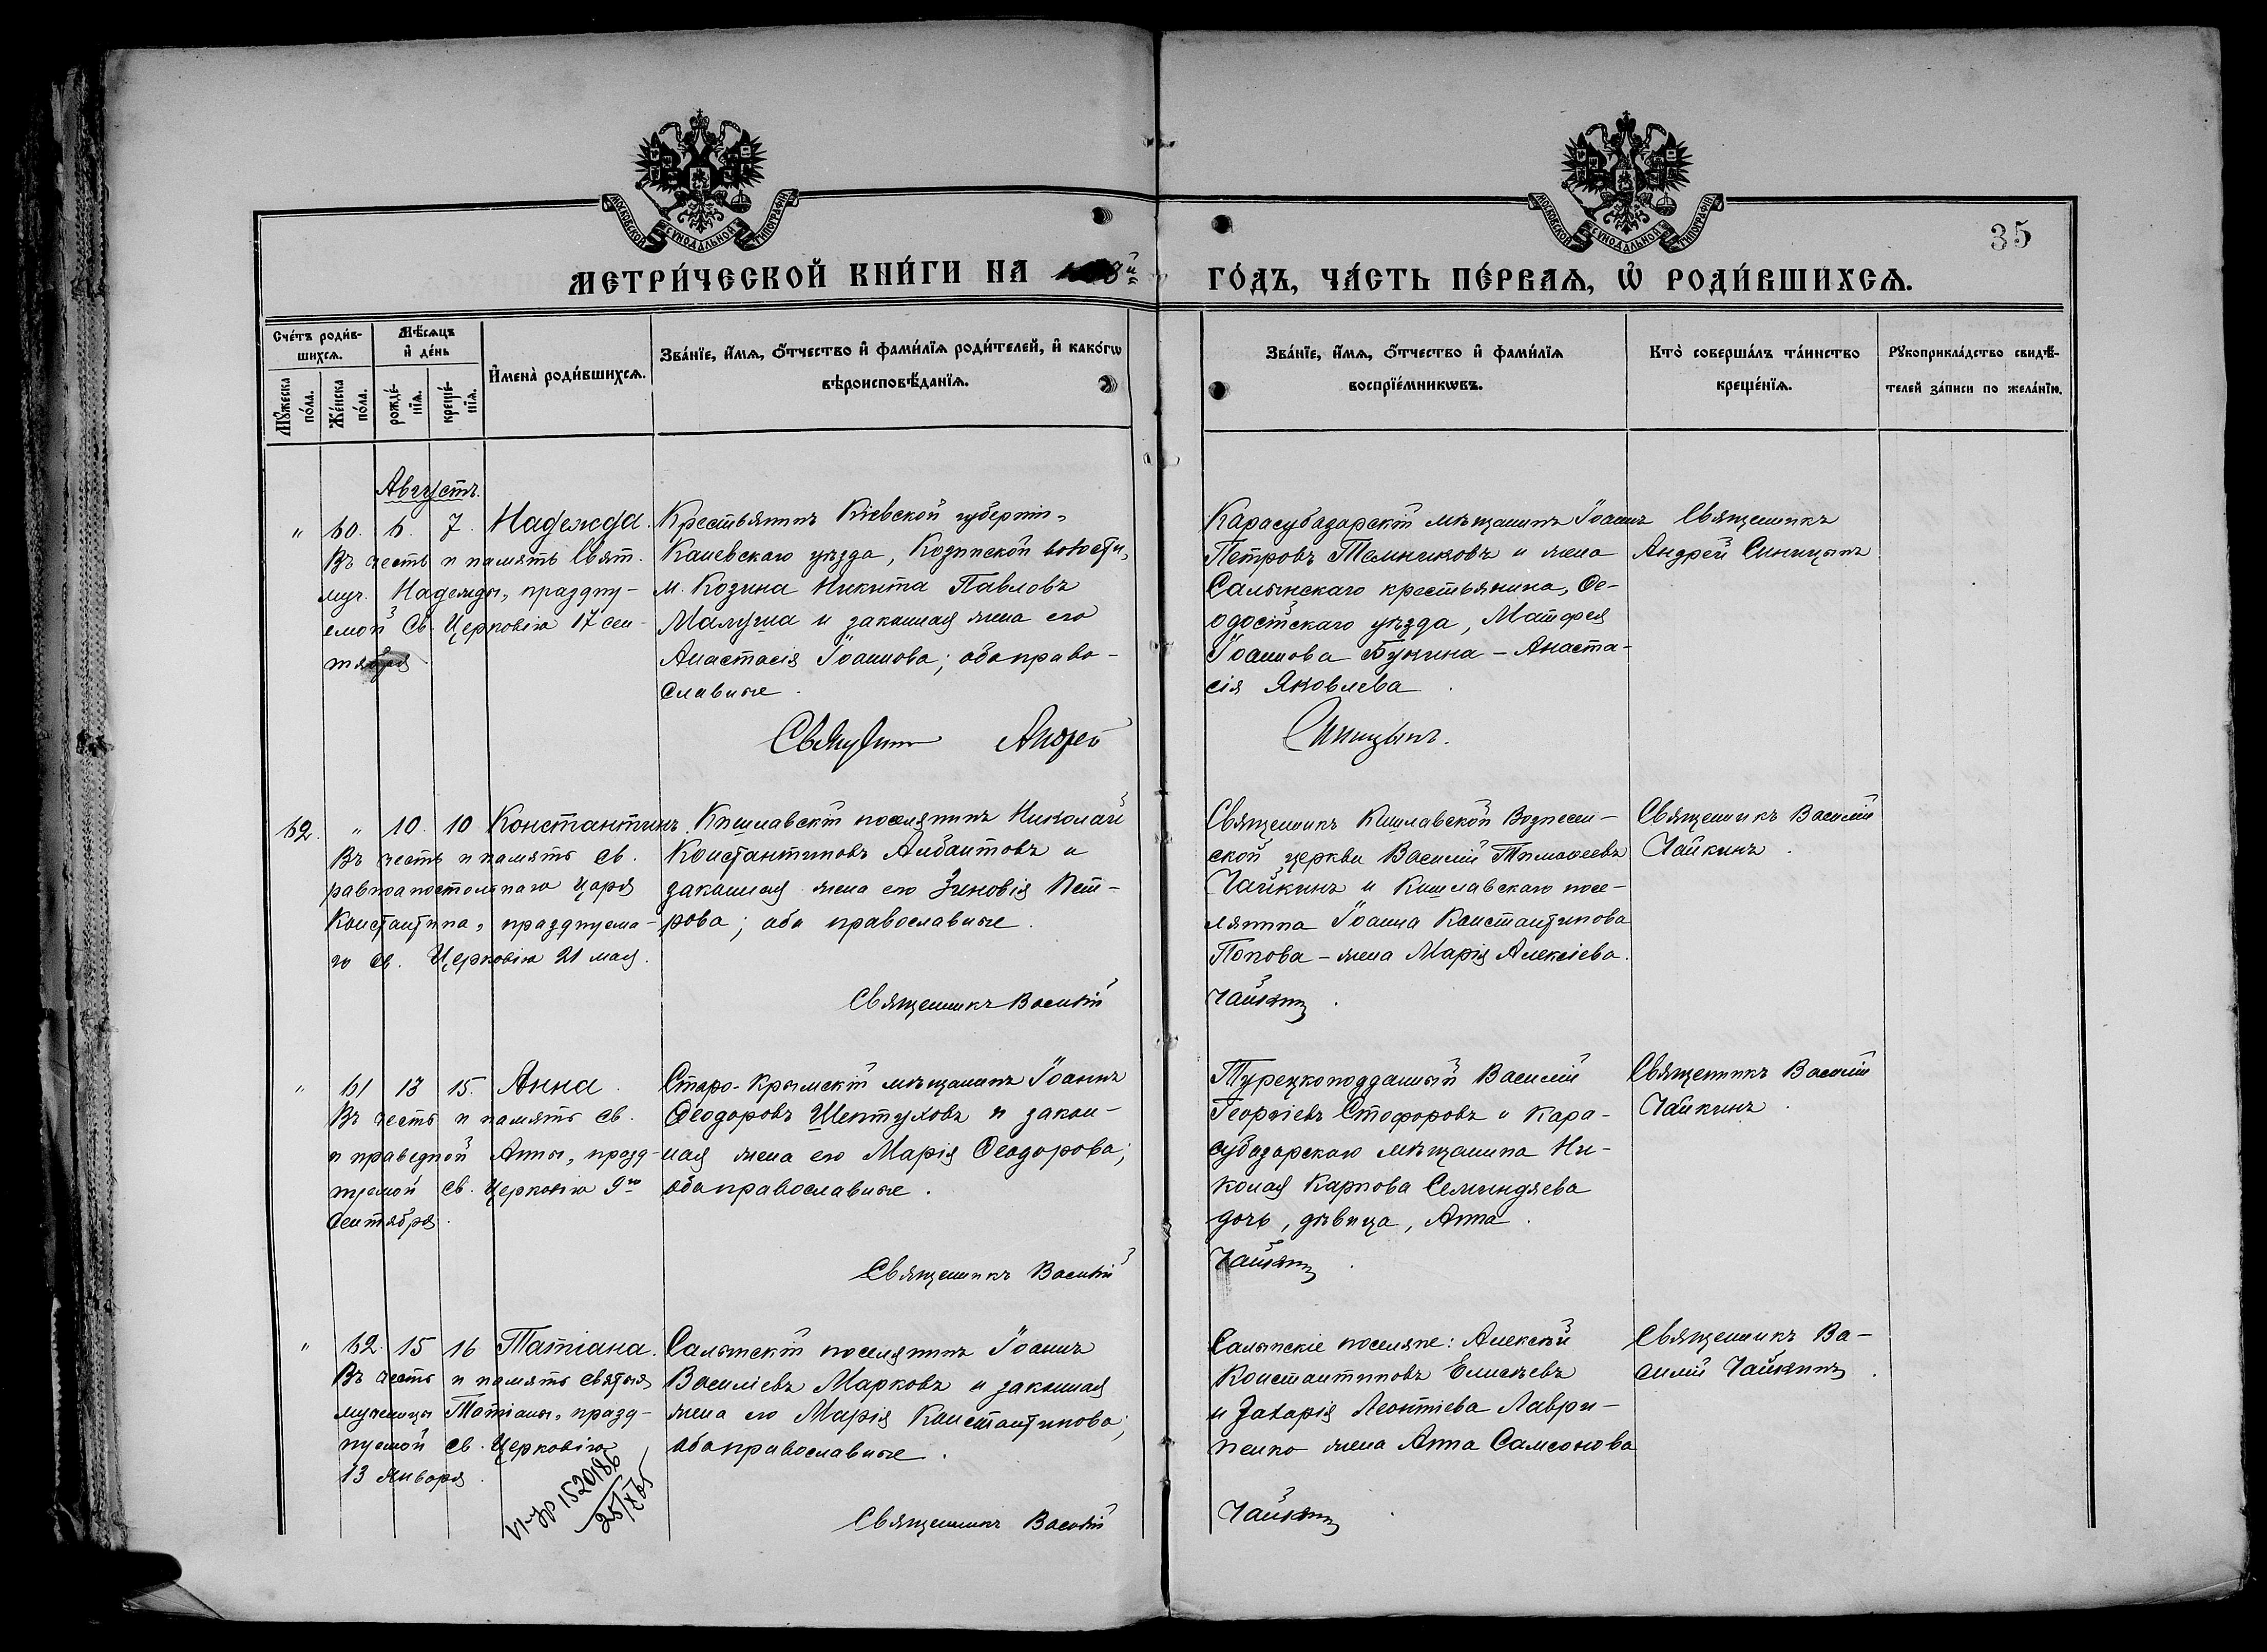 МОСКОВСКОЙ СѴНОДАЛЬНОЙ ТИПОГРАФІИ
МОСКОВСКОЙ СѴНОДАЛЬНОЙ ТИПОГРАФІИ
35
МЕТРИ́ЧЕСКОЙ КНИ́ГИ НА 8й ГО́ДЪ, ЧА́СТЬ ПЕ́РВАѦ, Ѡ РОДИ́ВШИХСѦ.
Сче́тъ роди́в-
шихсѧ.
Мꙋжеска по́ла.
Же́нска по́ла.
Мѣ́сѧцъ
и де́нь
рожде́-
нїѧ.
креще́-
нїѧ.
Имена̀ роди́вшихсѧ.
Зва́нїе, и́мѧ, ѻ́тчество и фами́лїѧ роди́телей, и како́гѡ
вѣроисповѣ́данїѧ.
Зва́нїе, и́мѧ, ѻ́тчество и фами́лїѧ
воспрїе́мникѡвъ.
Кто̀ соверша́лъ та́инство
креще́нїѧ.
Рꙋкоприкла́дство свидѣ́-
телей за́писи по жела́нїю.
Августъ.
" 60. 6. 7. Надежда.
Въ честь и память Свят.
муч. Надежды, праздну-
емой Св. Церковію 17 сен-
тября
Крестьянинъ Кіевской губерніи,
Каневскаго уѣзда, Козинской волости,
м. Козина Никита Павловъ
Малуша и законная жена его
Анастасія Іоаннова; оба право-
славные.
Карасубазарскій мѣщанинъ Іоаннъ
Петровъ Темниковъ и жена
Салынскаго крестьянина, Ѳе-
одосійскаго уѣзда, Матѳея
Іоаннова Букина - Анаста-
сія Яковлева
Священникъ
Андрей Синицынъ
Священникъ Андрей Синицынъ.
62. " 10. 10 Константинъ.
Въ честь и память св.
равноапостольнаго царя
Константина, празднуема-
го св. Церковію 21 мая.
Кишлавскій поселянинъ Николай
Константиновъ Албантовъ и
законная жена его Зиновія Пет-
рова; оба православные.
Священникъ Кишлавской Вознесен-
ской церкви Василій Тимоѳеевъ
Чайкинъ и Кишлавскаго посе-
лянина Іоанна Константинова
Попова - жена Марія Алексіева.
Священникъ Василій
Чайкинъ.
Священникъ Василій Чайкинъ.
" 61 13 15. Анна.
Въ честь и память св.
и праведной Анны, празд-
нуемой св. Церковію 9го
сентября.
Старо-Крымскій мѣщанинъ Іоаннъ
Ѳеодоровъ Шептуховъ и закон-
ная жена его Марія Ѳеодорова;
оба православные.
Турецкоподданный Василій
Георгіевъ Стофоровъ и Кара-
субазарскаго мѣщанина Ни-
колая Карпова Семиндяева
дочь, дѣвица, Анна.
Священникъ Василій
Чайкинъ.
Священникъ Василій Чайкинъ.
" 62. 15 16 Татіана.
Въ честь и память святыя
мученицы Татіаны, празд-
нуемой св. Церковію
13 января.
Салынскій поселянинъ Іоаннъ
Василіевъ Марковъ и законная
жена его Марія Константинова;
оба православные.
Салынскіе поселяне: Алексѣй
Константиновъ Елисѣевъ
и Захарія Леонтіева Лаври-
ненко жена Анна Самсонова
Священникъ Ва-
силій Чайкинъ.
Священникъ Василій Чайкинъ.
1520186
25/X 65